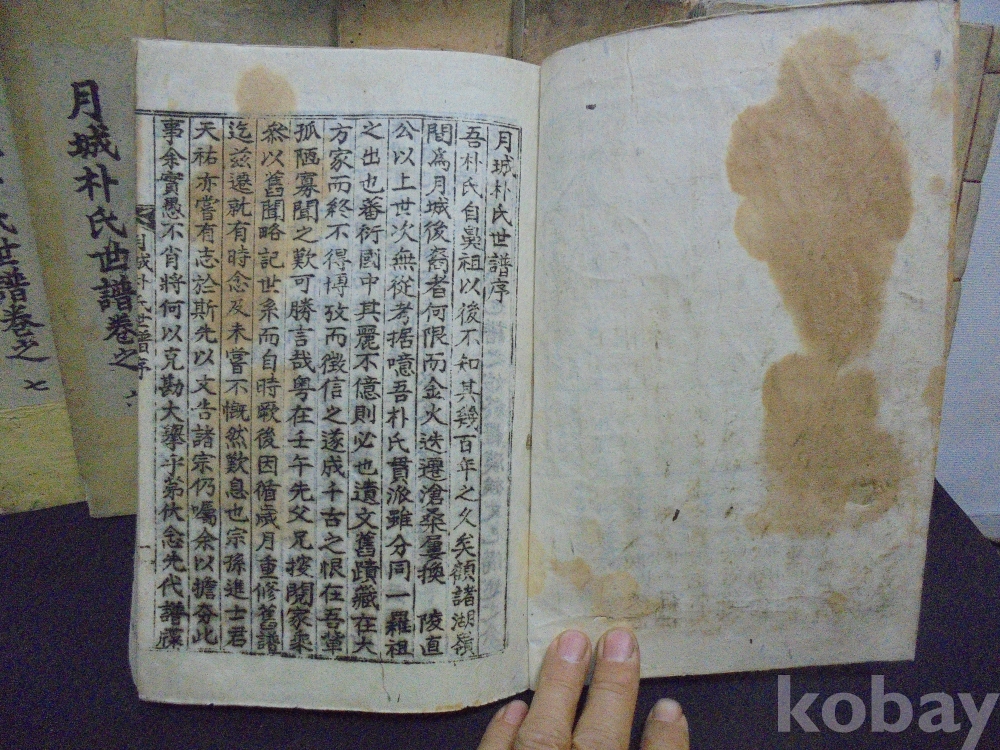 月城朴氏世譜序
吾朴氏自鼻祖以後不知其幾百年之久矣顧諸湖嶺
間爲月城後裔者何限而金火迭遷滄桑屢換 陵直
公以上世次無從考据噫吾朴氏貫派雖分同一羅祖
之出也蕃衍國中其麗不億則必也遺文舊蹟藏在大
方家而終不得博攷而徵信之遂成千古之恨在吾輩
孤陋寡聞之歎可勝言哉粤在壬午先父兄按閱家乘
叅以舊聞略記世系而自時厥後因循歲月重修舊譜
迄玆遷就有時念及未嘗不慨然歎息也宗孫進士君
天祐亦嘗有志於斯先以文告諸宗仍囑余以擔夯此
事余實愚不肖將何以克勘大擧乎第伏念先代譜牒
月城朴氏世譜序
月城朴氏世譜卷之六
氏世譜卷之七
kobay